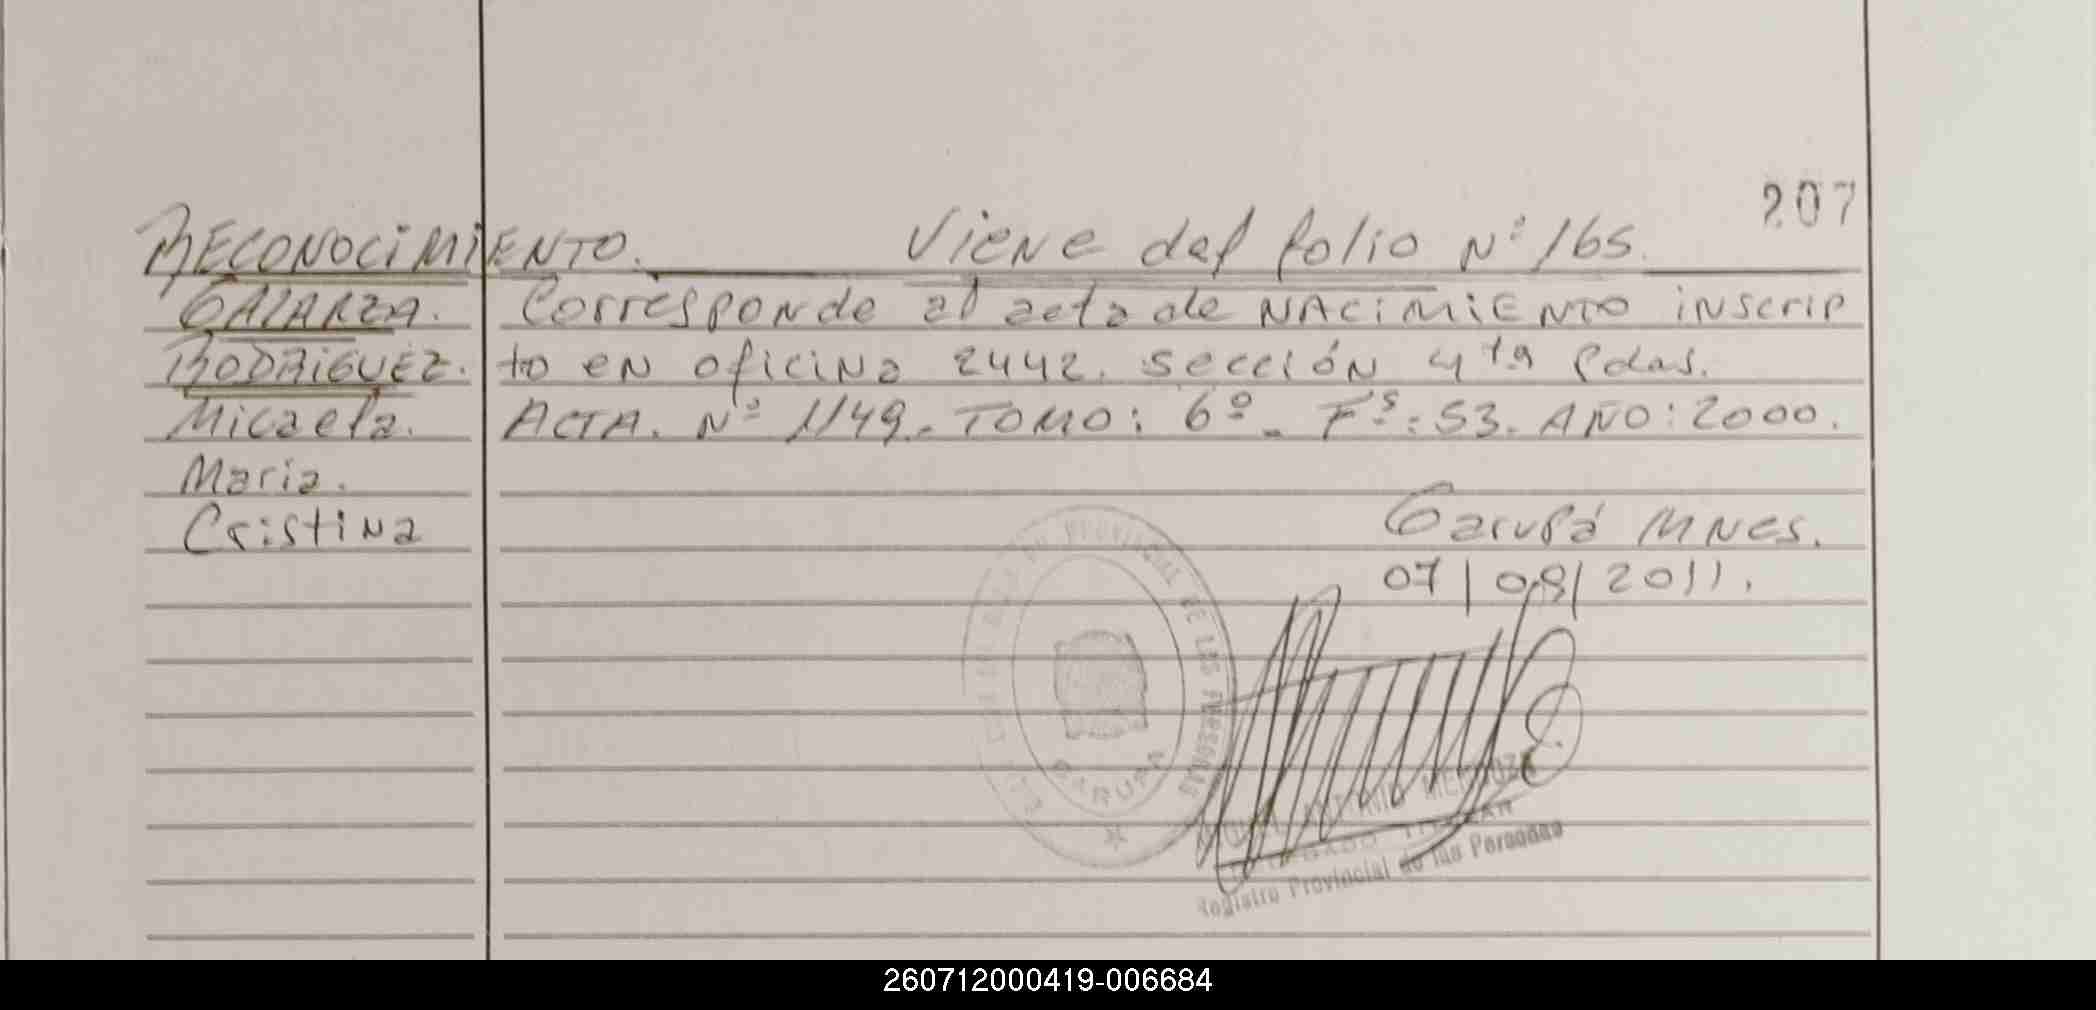 207
RECONOCIMIENTO. Viene del folio Nº 165.
GALARZA. Corresponde al acta de NACIMIENTO inscrip
RODRIGUEZ. to en oficina 2442. sección 4ta Pdas.
Micaela. ACTA. Nº 1149.- TOMO: 6º - Fº: 53. AÑO: 2000.
Maria.
Cristina
Garupá MNES.
07/09/2011.
PROVINCIAL DE LAS PERSONAS
GARUPA
ANTONIO
TITULAR
Registro Provincial de las Personas
260712000419-006684